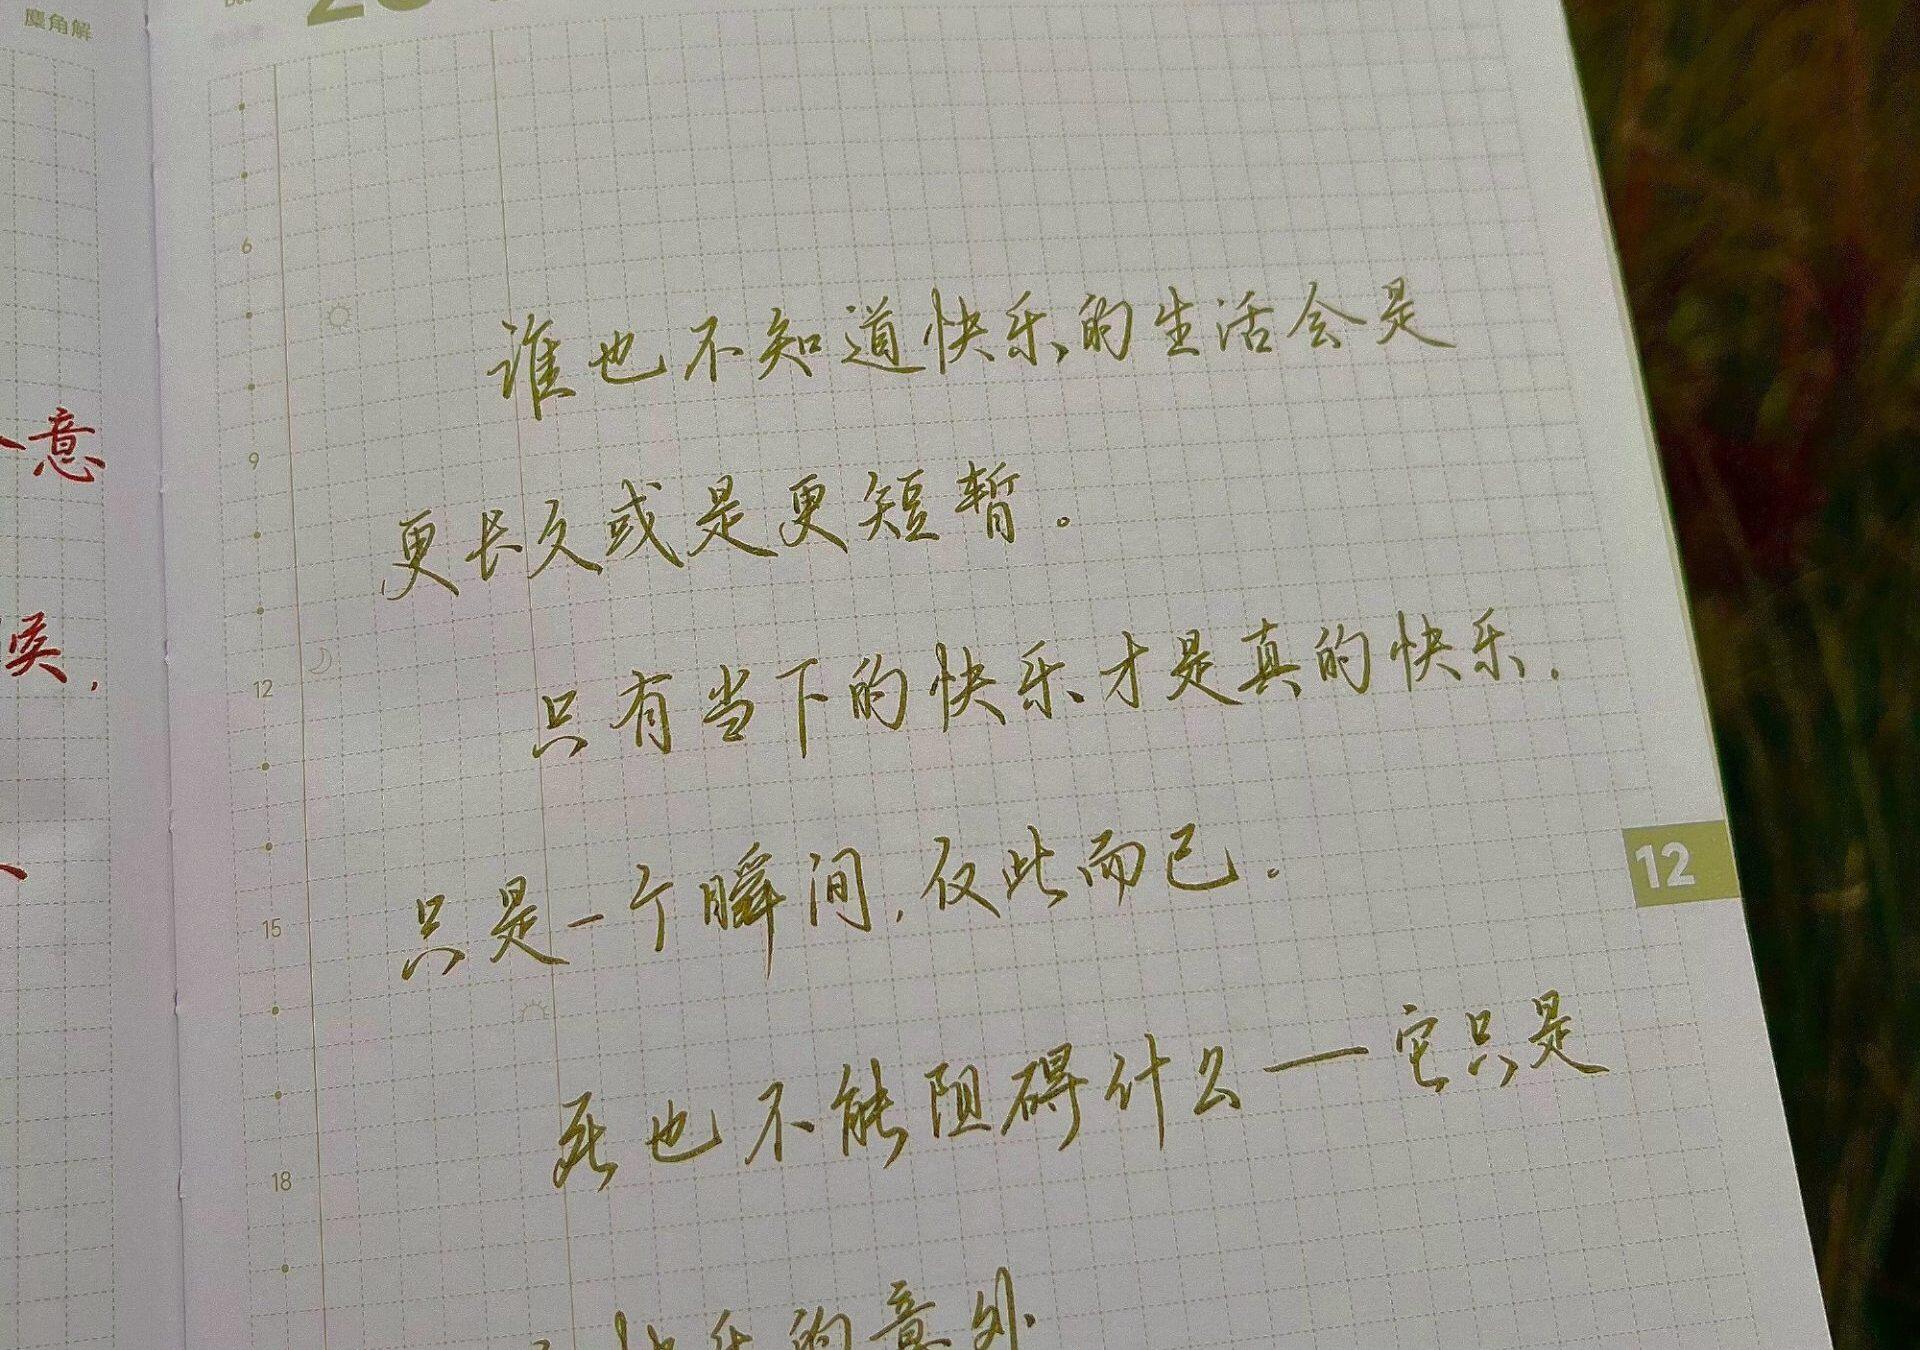 麋角解
意
6
谁也不知道快乐的生活会是
9
更长久或是更短暂。
12
只有当下的快乐才是真的快乐.
只是一个瞬间,仅此而已.
12
15
死也不能阻碍什么——它只是
18
快乐的意外